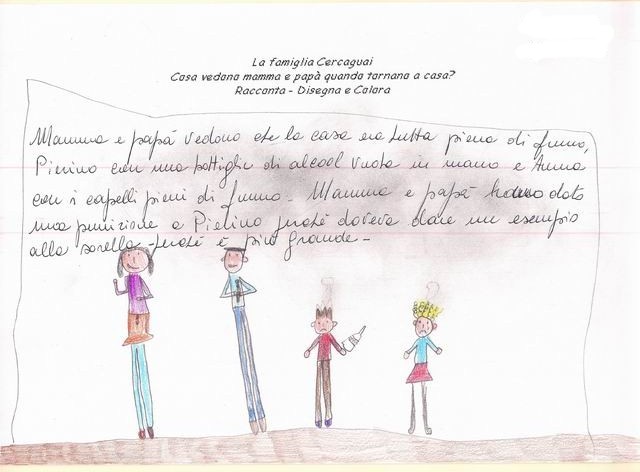 La famiglia Cercaguai
Cosa vedono mamma e papà quando tornano a casa?
Racconta - Disegna e Colora
Mamma e papà vedono che la casa era tutta piena di fumo,
Pierino con una bottiglia di alcool vuota in mano e Anna
con i capelli pieni di fumo - Mamma e papà hanno dato
una punizione a Pierino perché doveva dare un esempio
alla sorella - perché è più grande -